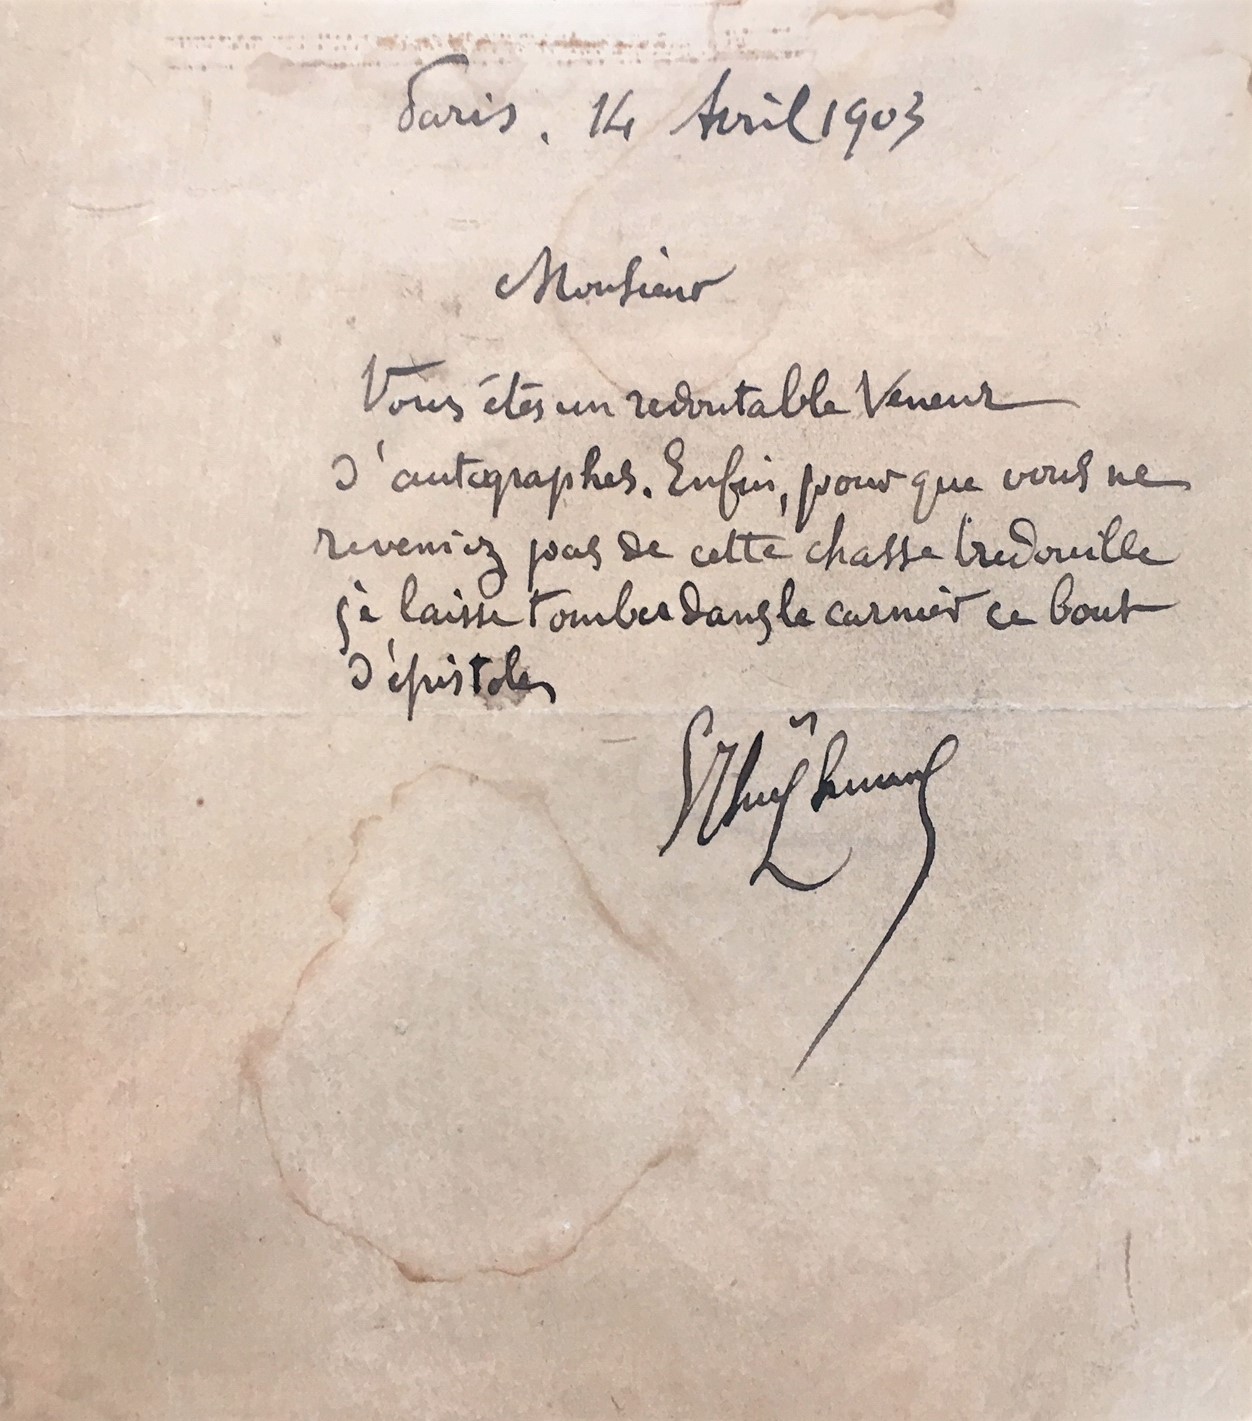 Paris. 14 Avril 1903
Monsieur
Vous êtes un redoutable Veneur
d'autographes. Enfin, pour que vous ne
reveniez pas de cette chasse bredouille
je laisse tomber dans le carnier ce bout
d'épistole
J K Huysmans